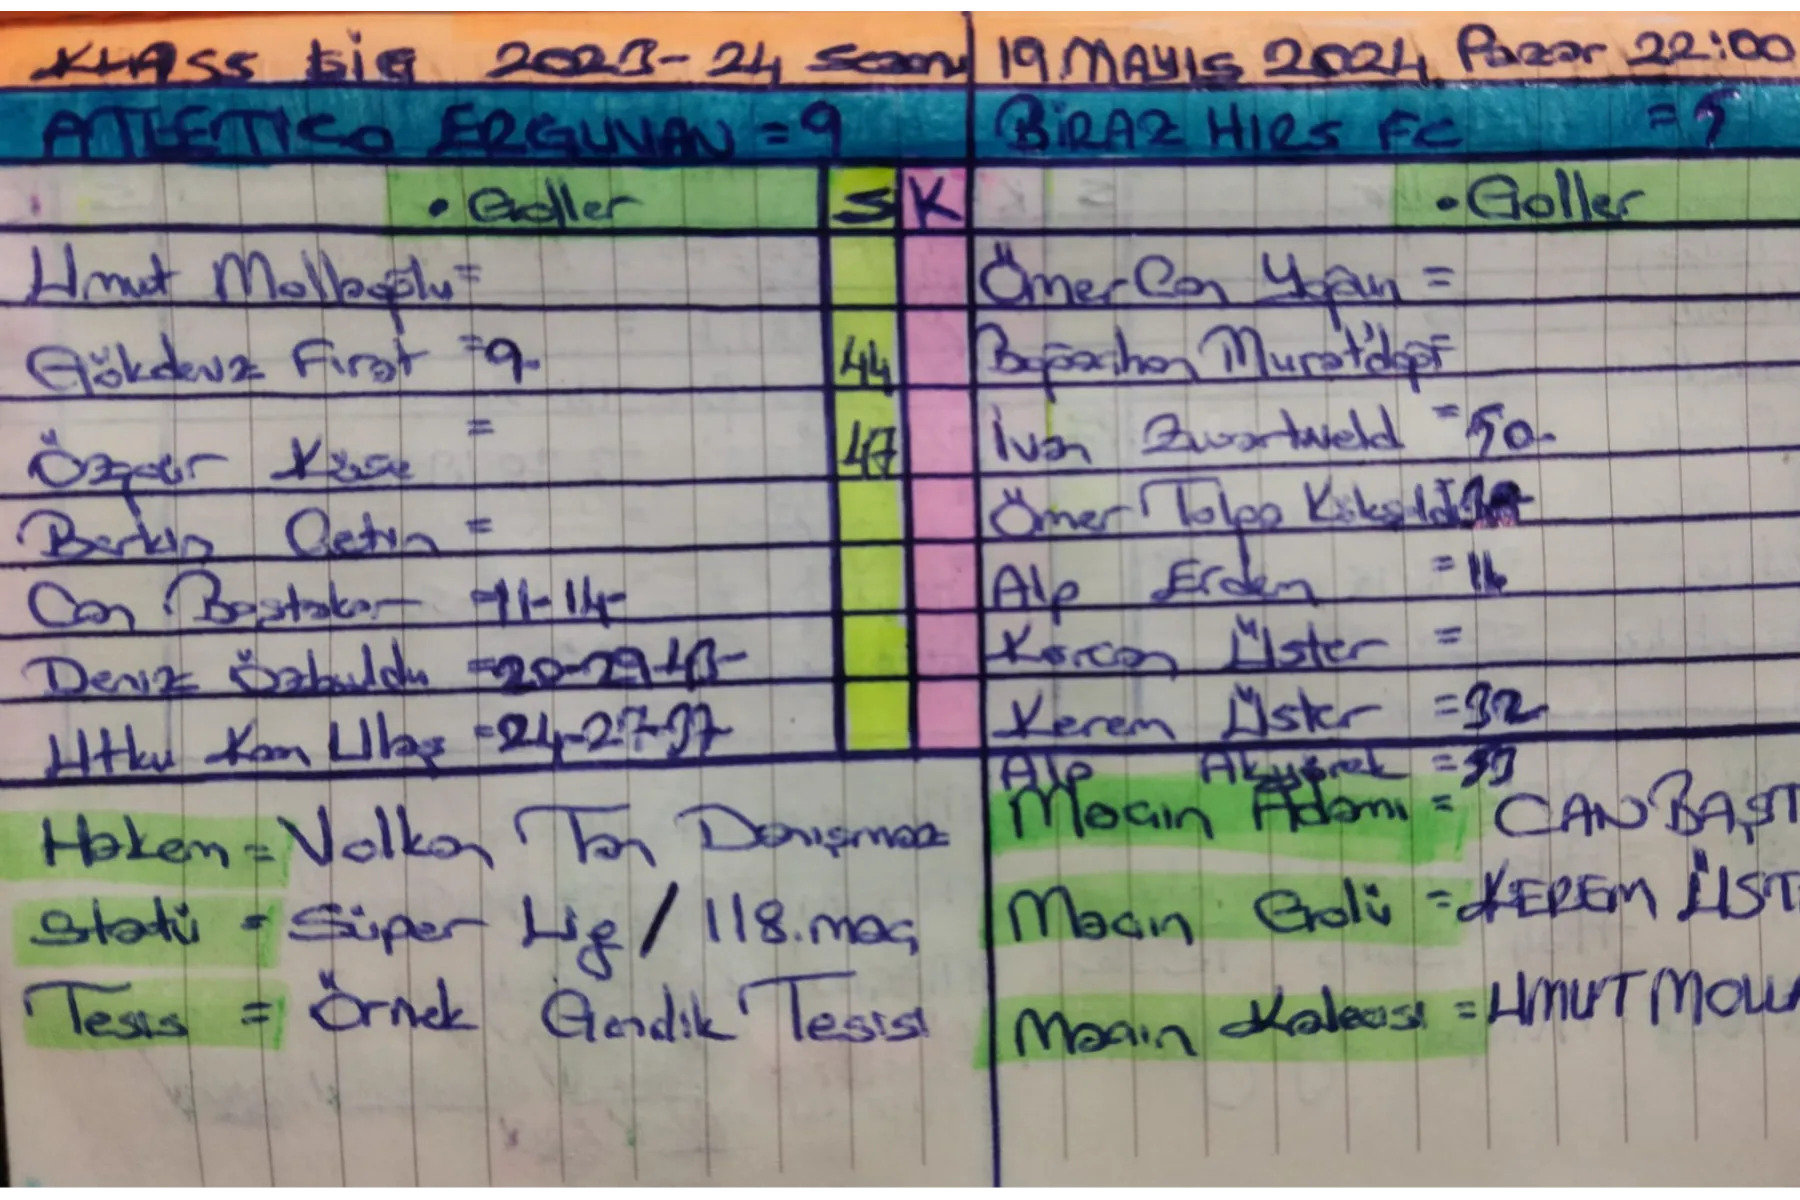 KLASS LİG 2023-24 Sezonu
19 MAYIS 2024 Pazar 22:00
ATLETICO ERGUVAN = 9
BİRAZ HIRS FC = 5
• Goller S K
• Goller
Umut Mollaoğlu =
Ömer Can Yoğun =
Gökdeniz Fırat = 9- 44
Boğaçhan Muratdağı
Özgür Köse = 47
İvan Zwartveld = 50-
Berkin Çetin =
Ömer Tolga Köksaldı
Can Baştakar = 11-14-
Alp Erden = 16
Deniz Özbuldu = 20-29-43-
Korcan Üster =
Utku Kan Ulaş = 24-27-37-
Kerem Üster = 32-
Alp Akyürek =
Hakem = Volkan Tan Danışmaz
Maçın Adamı = CAN BAŞT
Statü = Süper Lig / 118. maç
Maçın Golü = KEREM ÜST
Tesis = Örnek Gendik Tesisi
Maçın Kalecisi = UMUT MOLLA